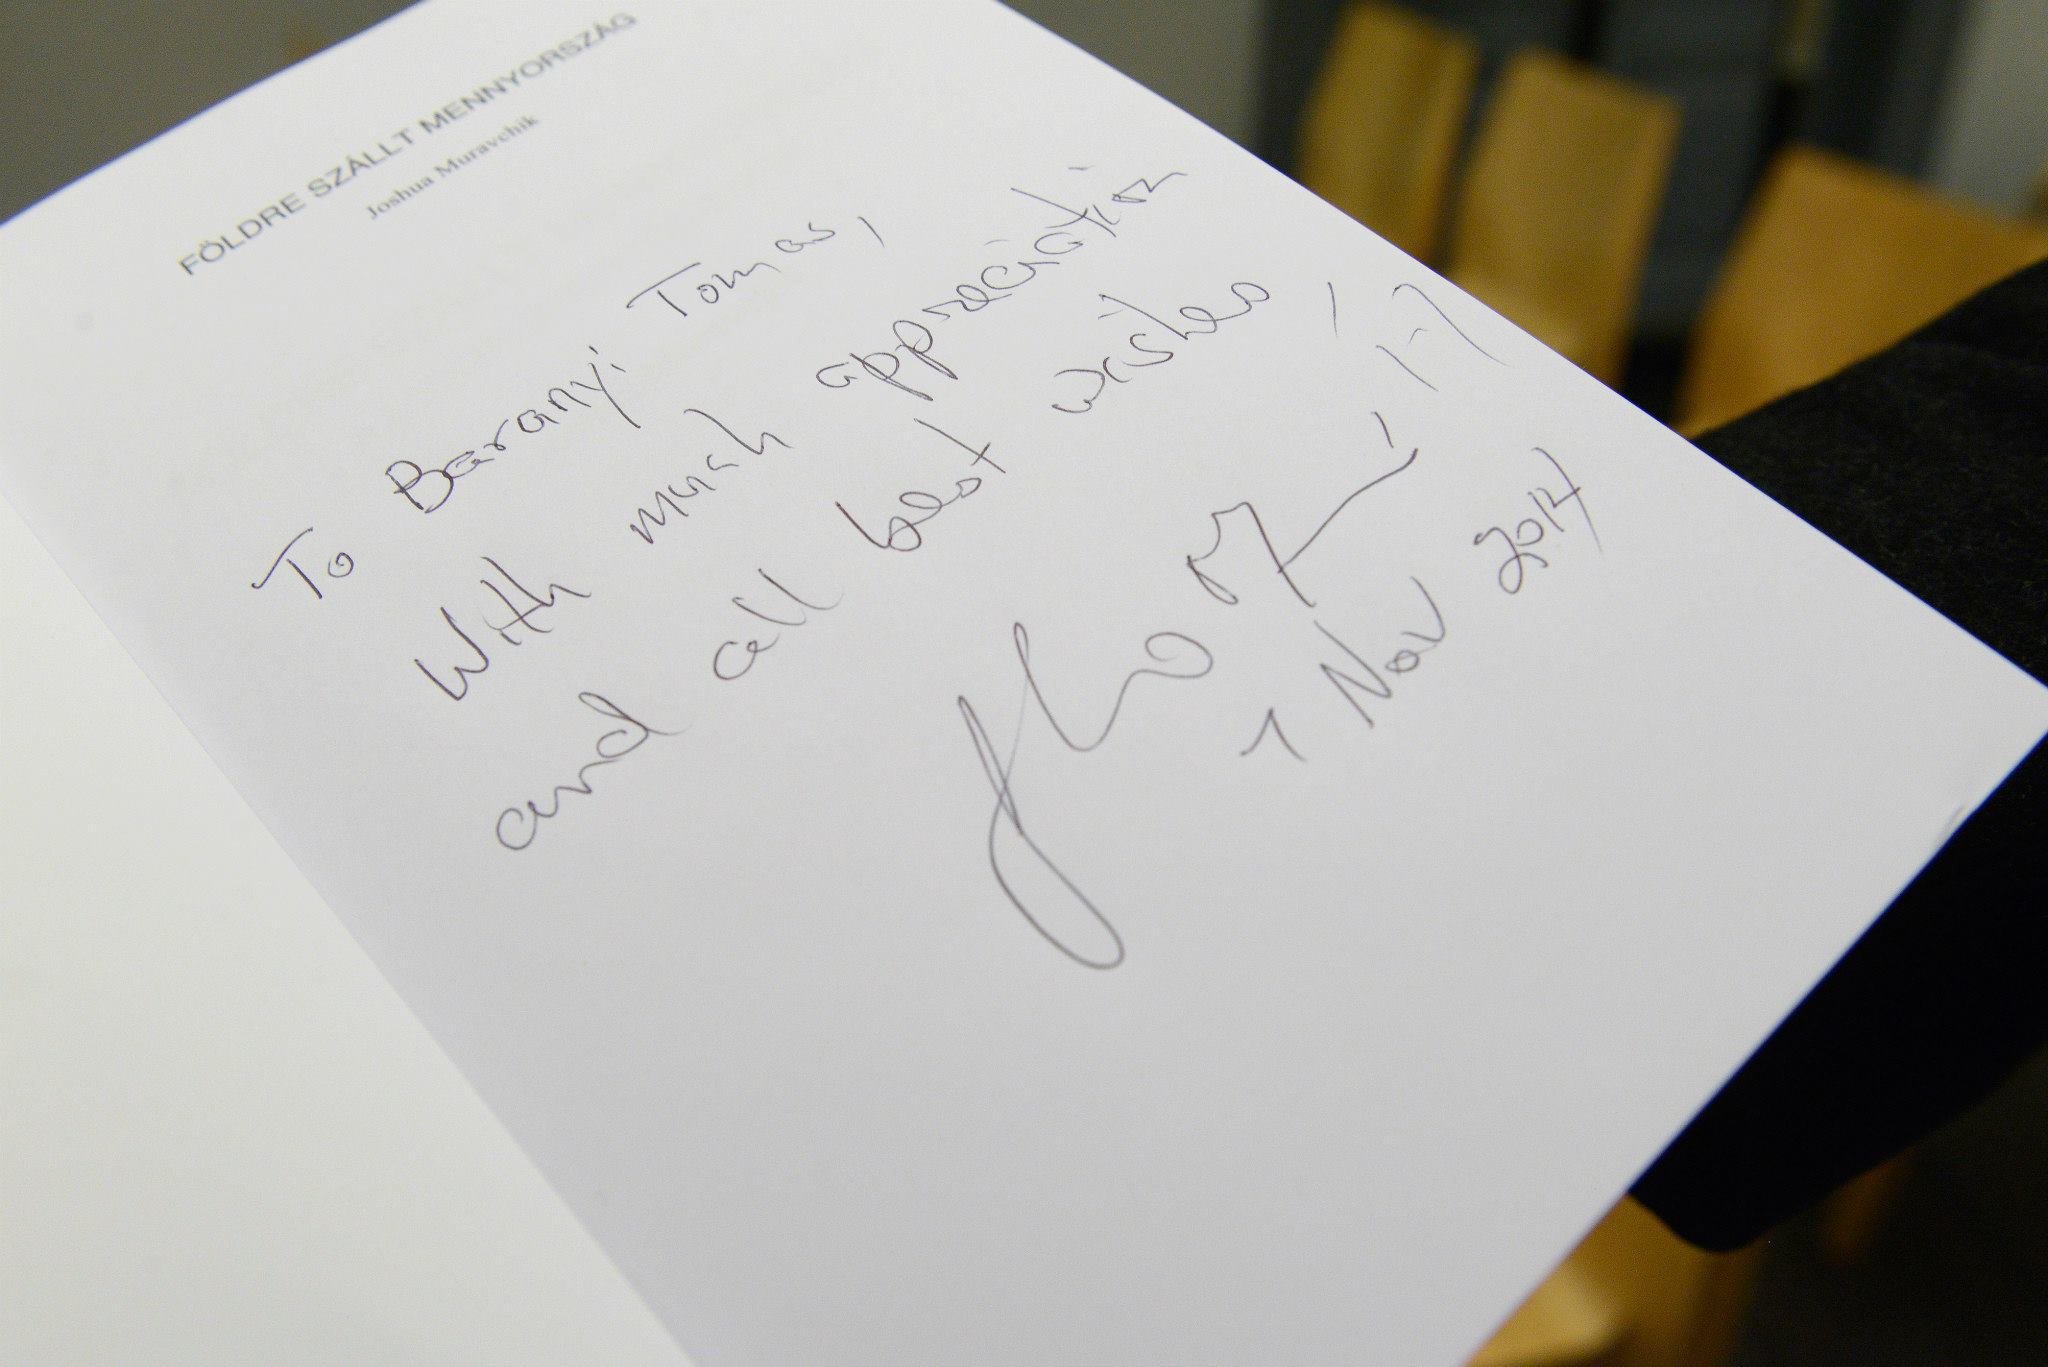 FÖLDRE SZÁLLT MENNYORSZÁG
Joshua Muravchik
To Baranyi Tomas,
With much appreciation
and all best wishes,
7 Nov 2014